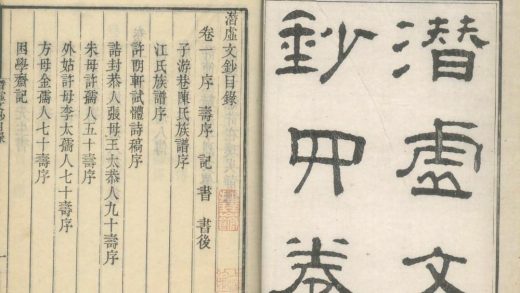 潛虛文
鈔四卷
潛虛文鈔目錄
卷一 序 壽序 記 書 書後
子游巷陳氏族譜序
江氏族譜序
許明軒試體詩稿序
誥封恭人張母王太恭人九十壽序
朱母許孺人五十壽序
外姑許母李太孺人七十壽序
方母金孺人七十壽序
困學齋記